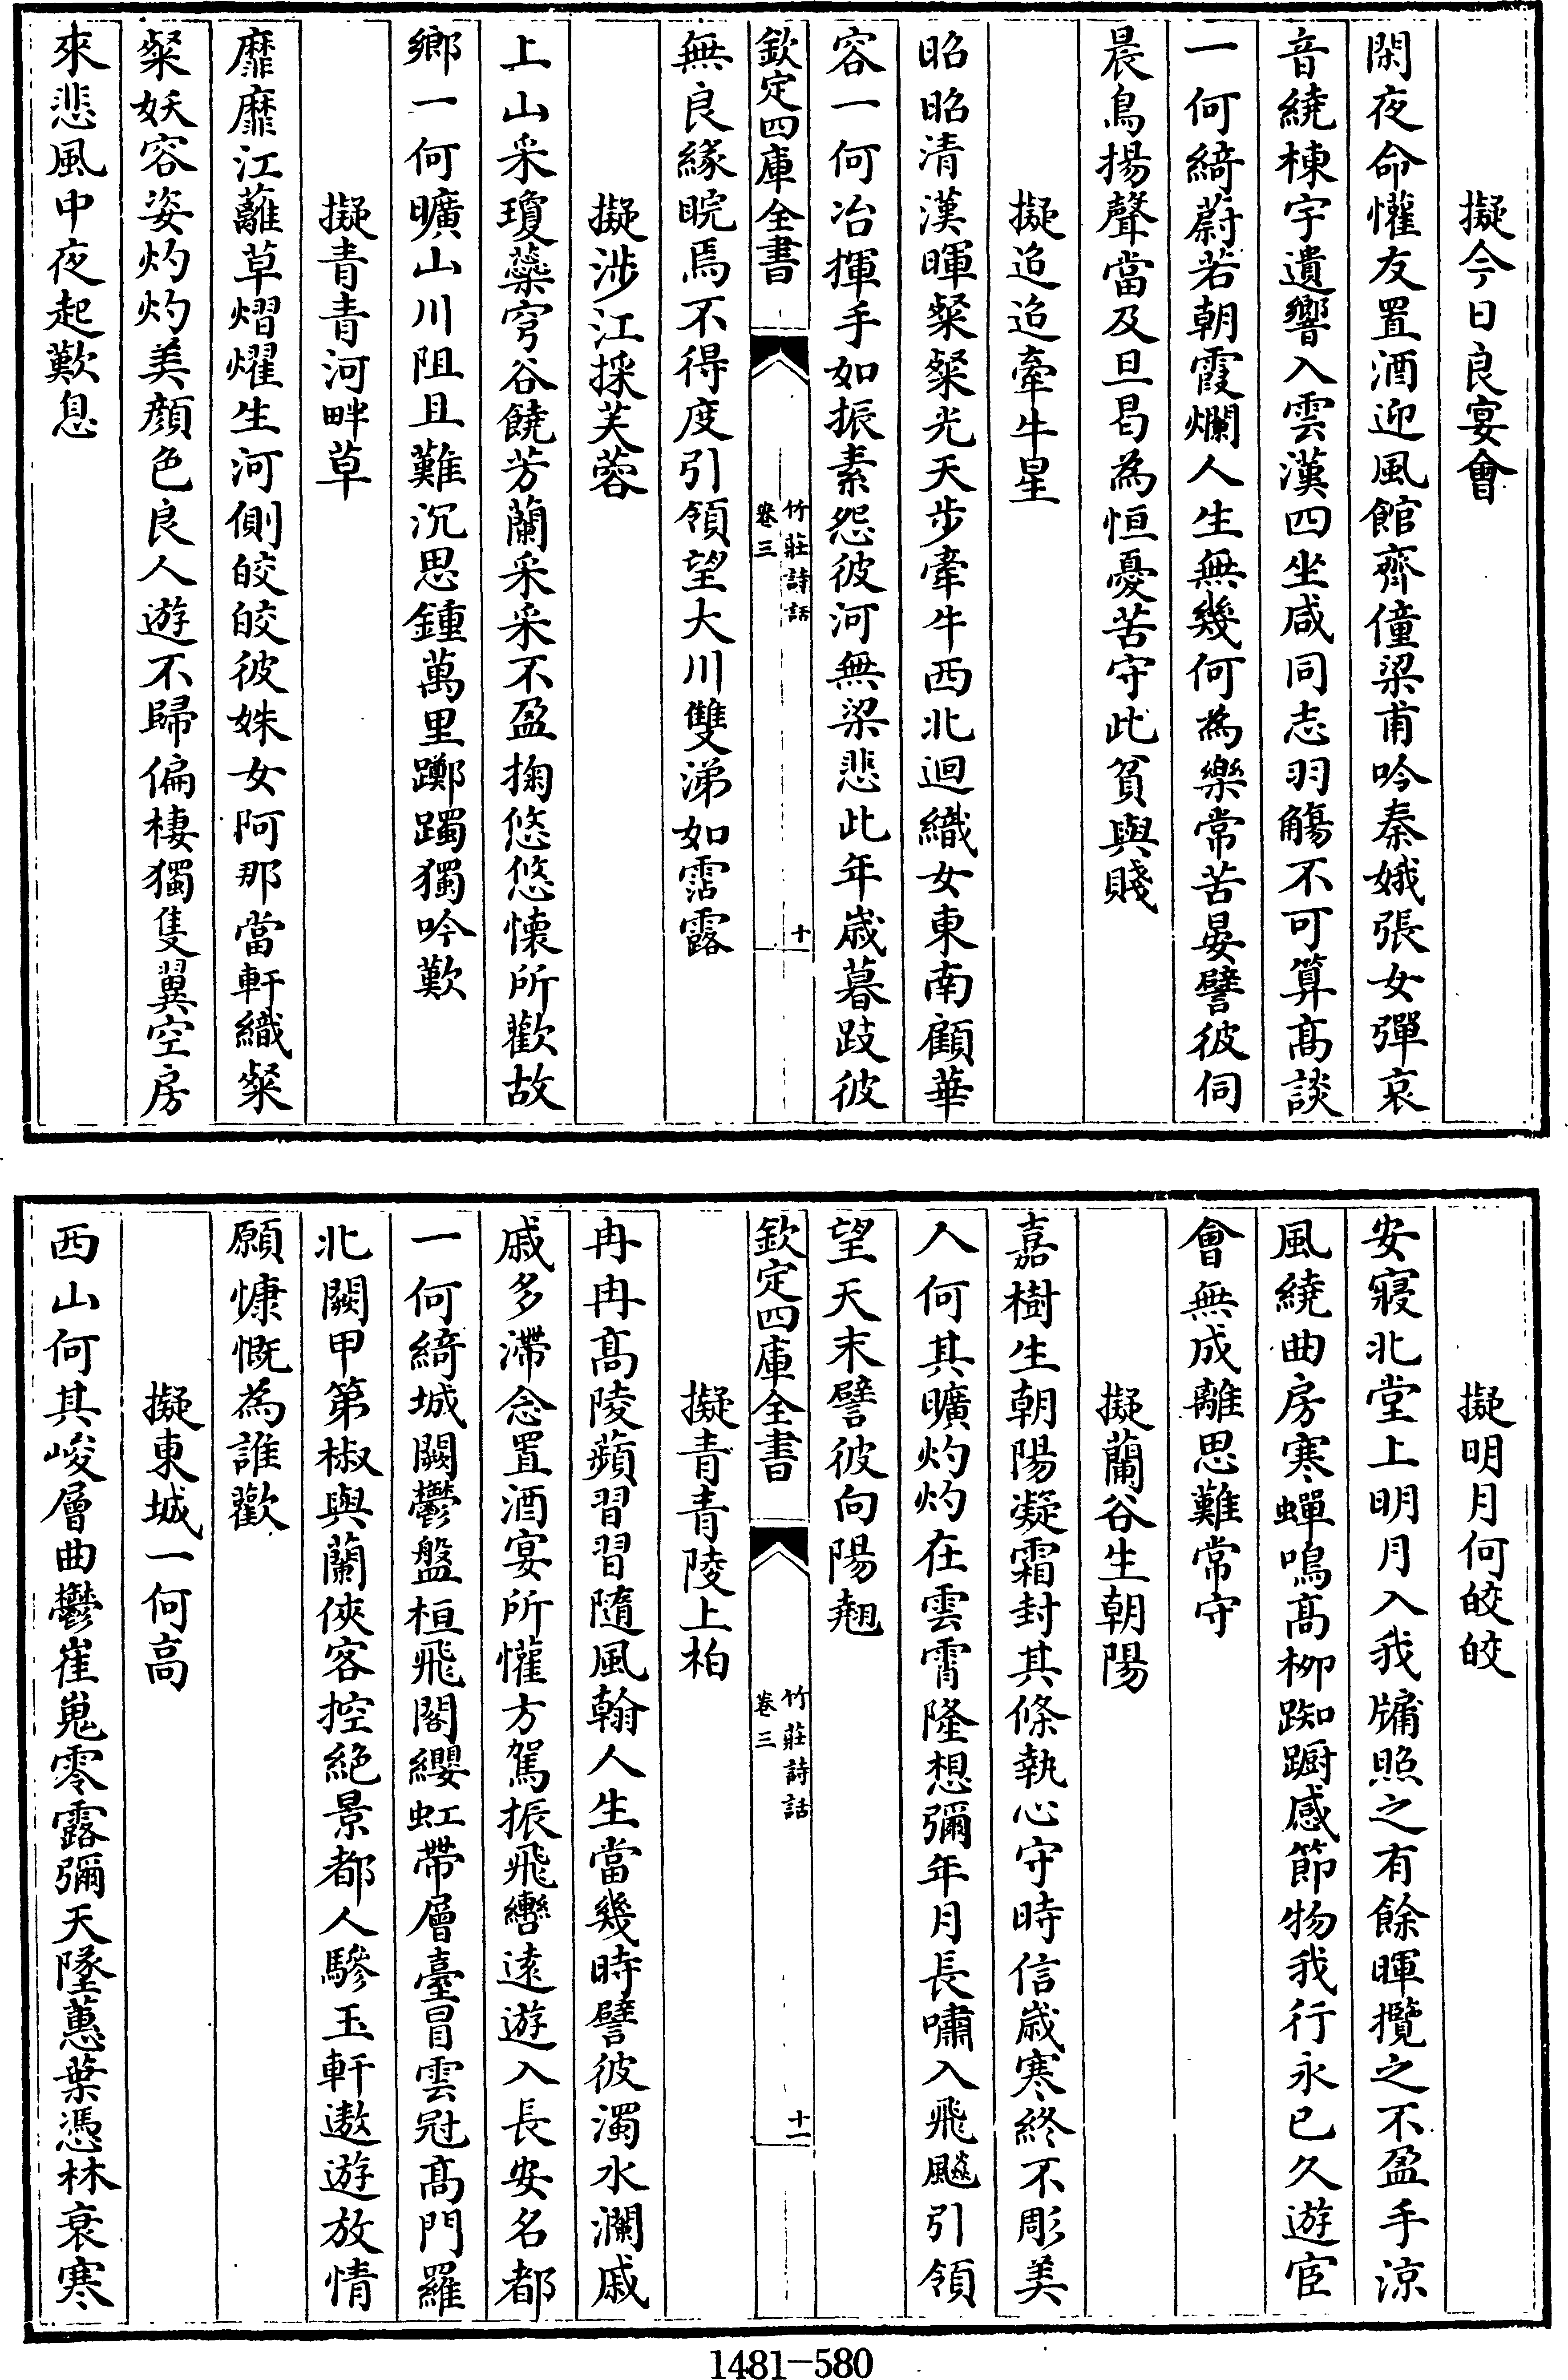 擬今日良宴會
閑夜命懽友置酒迎風館齊僮梁甫吟秦娥張女彈哀
音繞棟宇遺響入雲漢四坐咸同志羽觴不可算髙談
一何綺蔚若朝霞爛人生無幾何為樂常苦晏譬彼伺
晨鳥揚聲當及旦曷為恒憂苦守此貧與賤
擬迢迢牽牛星
昭昭清漢暉粲粲光天步牽牛西北迴織女東南顧華
容一何冶揮手如振素怨彼河無梁悲此年歲暮跂彼
欽定四庫全書
竹莊詩話
卷三
十
無良緣睆焉不得度引領望大川雙涕如霑露
擬涉江採芙蓉
上山采瓊蘂穹谷饒芳蘭采采不盈掬悠悠懐所歡故
鄉一何曠山川阻且難沉思鍾萬里躑躅獨吟歎
擬青青河畔草
靡靡江蘺草熠燿生河側皎皎彼姝女阿那當軒織粲
粲妖容姿灼灼美顔色良人遊不歸偏棲獨隻翼空房
來悲風中夜起歎息
擬明月何皎皎
安寢北堂上明月入我牖照之有餘暉攬之不盈手涼
風繞曲房寒蟬鳴髙柳踟蹰感節物我行永已久遊宦
會無成離思難常守
擬蘭谷生朝陽
嘉樹生朝陽凝霜封其條執心守時信歲寒終不彫美
人何其曠灼灼在雲霄隆想彌年月長嘯入飛飈引領
望天末譬彼向陽翹
欽定四庫全書
竹莊詩話
卷三
十一
擬青青陵上柏
冉冉髙陵蘋習習隨風翰人生當幾時譬彼濁水瀾戚
戚多滯念置酒宴所懽方駕振飛轡遠遊入長安名都
一何綺城闕鬱盤桓飛閣纓虹帶層臺冒雲冠髙門羅
北闕甲第椒與蘭俠客控絕景都人驂玉軒遨遊放情
願慷慨為誰歡
擬東城一何高
西山何其峻層曲鬱崔嵬零露彌天墜蕙葉憑林衰寒
1481-580